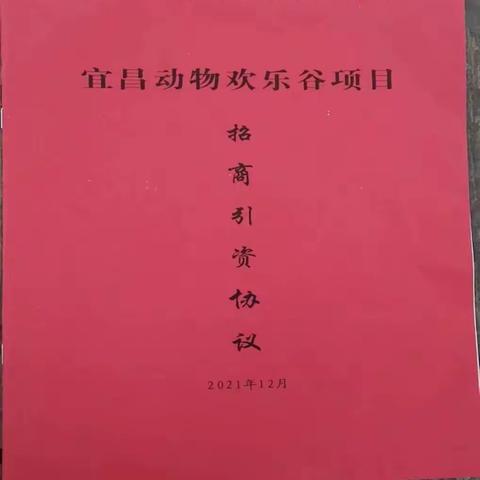 宜昌动物欢乐谷项目
招商引资协议
2021年12月